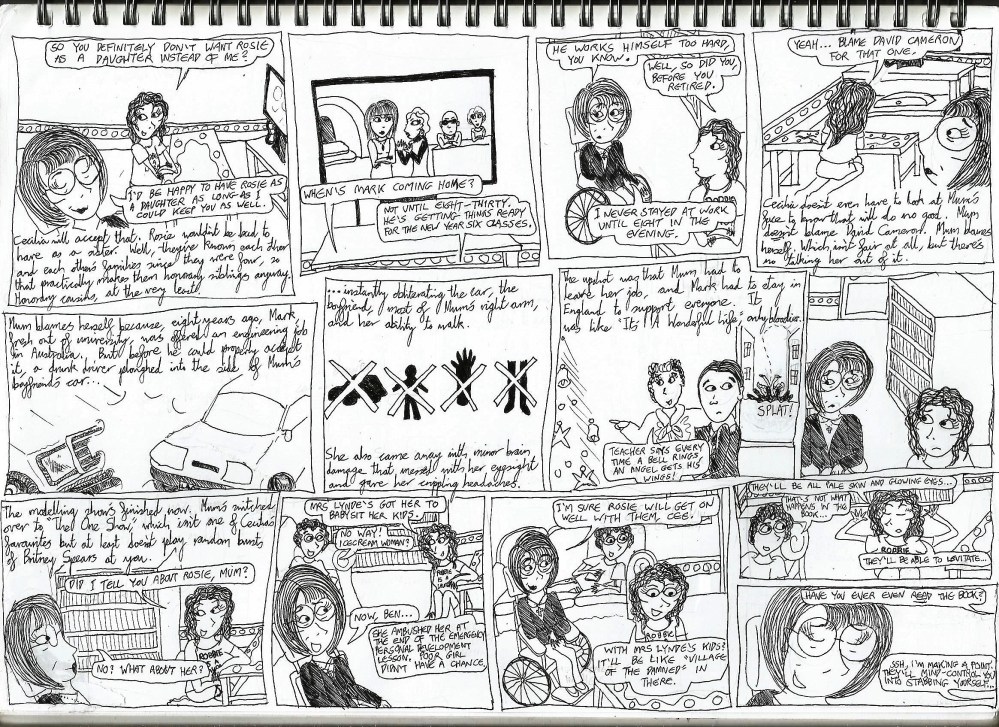 SO YOU DEFINITELY DON'T WANT ROSIE
AS A DAUGHTER INSTEAD OF ME?
I'D BE HAPPY TO HAVE ROSIE AS
A DAUGHTER AS LONG AS I
COULD KEEP YOU AS WELL.
Cecilia will accept that. Rosie wouldn't be bad to
have as a sister. Well, they've known each other
and each other's families since they were four, so
that practically makes them honorary siblings anyway.
Honorary cousins, at the very least.
WHEN'S MARK COMING HOME?
NOT UNTIL EIGHT-THIRTY.
HE'S GETTING THINGS READY
FOR THE NEW YEAR SIX CLASSES.
HE WORKS HIMSELF TOO HARD,
YOU KNOW.
WELL, SO DID YOU,
BEFORE YOU
RETIRED.
I NEVER STAYED AT WORK
UNTIL EIGHT IN THE
EVENING.
YEAH... BLAME DAVID CAMERON
FOR THAT ONE.
Cecilia doesn't even have to look at Mum's
face to know that will do no good. Mum
doesn't blame David Cameron. Mum blames
herself. Which isn't fair at all, but there's
no talking her out of it.
Mum blames herself because, eight years ago, Mark,
fresh out of university, was offered an engineering job
in Australia. But before he could properly accept
it, a drunk driver ploughed into the side of Mum's
boyfriend's car...
...instantly obliterating the car, the
boyfriend, most of Mum's right arm,
and her ability to walk.
She also came away with minor brain
damage that messed with her eyesight
and gave her crippling headaches.
The upshot was that Mum had to
leave her job, and Mark had to stay in
England to support everyone. It
was like "It's A Wonderful Life," only bloodier.
TEACHER SAYS EVERY
TIME A BELL RINGS,
AN ANGEL GETS HIS
WINGS!
SPLAT!
The modelling show's finished now. Mum's switched
over to "The One Show," which isn't one of Cecilia's
favourites but at least doesn't play random bursts
of Britney Spears at you.
DID I TELL YOU ABOUT ROSIE, MUM?
NO? WHAT ABOUT HER?
ROBBIE
MRS LYNDE'S GOT HER TO
BABYSIT HER KIDS.
NO WAY!
ICECREAM WOMAN?
ROBBIE
IS A
NOW, BEN...
SHE AMBUSHED HER AT
THE END OF THE EMERGENCY
PERSONAL DEVELOPMENT
LESSON. POOR GIRL
DIDN'T HAVE A CHANCE.
I'M SURE ROSIE WILL GET ON
WELL WITH THEM, CEE.
ROBBIE
WITH MRS LYNDE'S KIDS?
IT'LL BE LIKE "VILLAGE
OF THE DAMNED" IN
THERE.
THEY'LL BE ALL PALE SKIN AND GLOWING EYES...
THAT'S NOT WHAT
HAPPENS IN THE
BOOK...
ROBBIE
THEY'LL BE ABLE TO LEVITATE...
HAVE YOU EVER EVEN READ THE BOOK?
SSH, I'M MAKING A POINT.
THEY'LL MIND-CONTROL YOU
INTO STABBING YOURSELF...